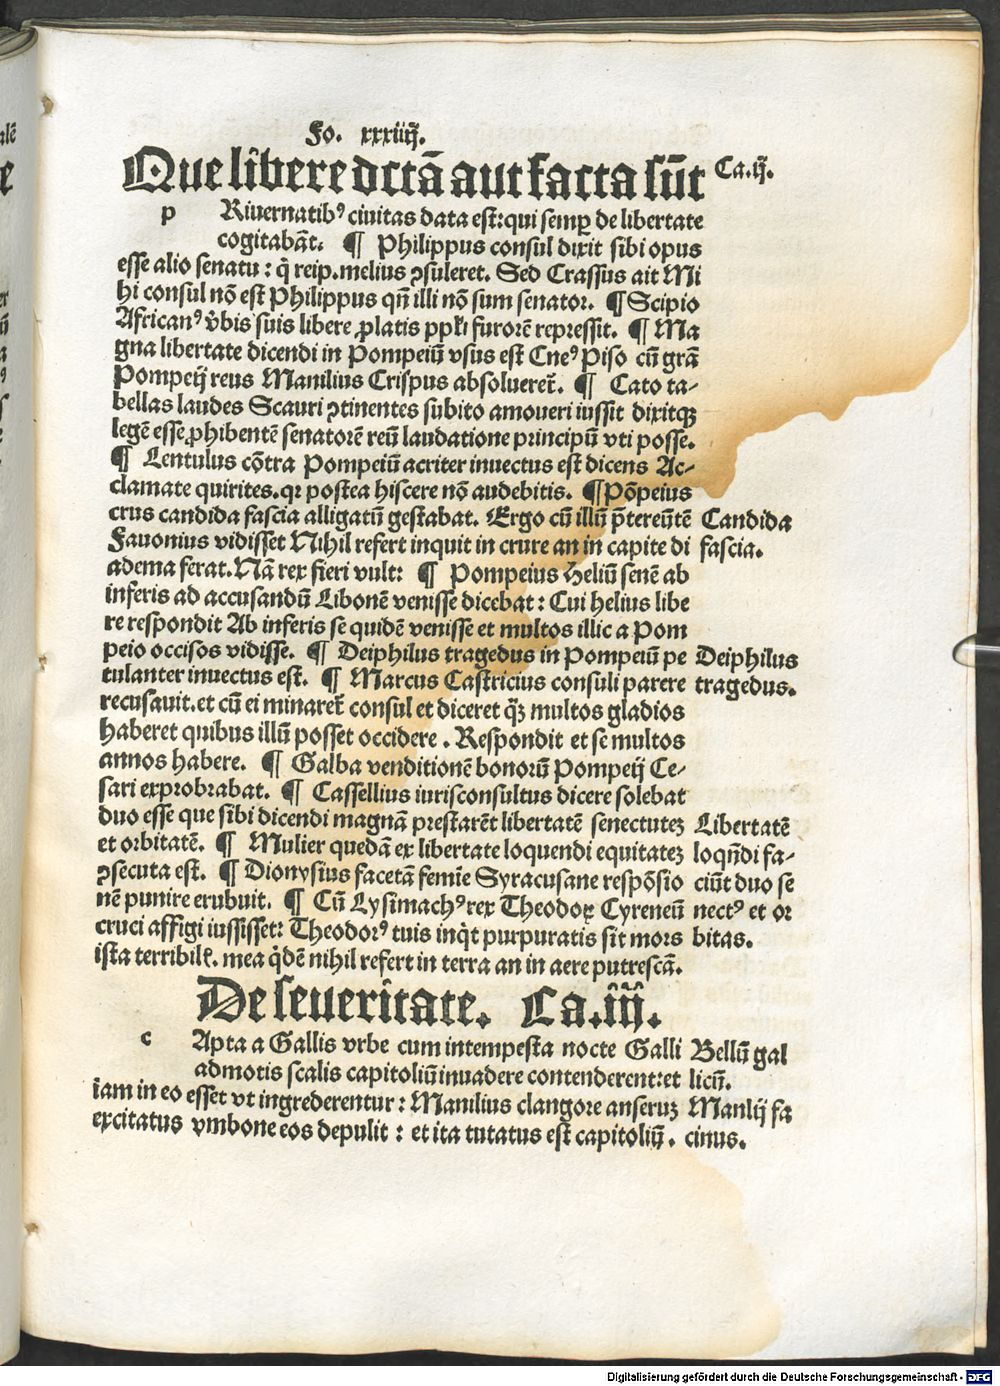 Fo. xxxiiij.
Que libere dctā aut facta sūt Ca.ij.
p Riuernatibꝰ ciuitas data est:qui semꝑ de libertate
cogitabāt. ¶ Philippus consul dixit sibi opus
esse alio senatu : q̇ reip.melius ꝯsuleret. Sed Crassus ait Mi
hi consul nō est Philippus qn̄ illi nō sum senator. ¶ Scipio
Africanꝰ v̇bis suis libere ꝓlatis ppl̓i furorē repressit. ¶ Ma
gna libertate dicendi in Pompeiū vsus est Cneꝰ Piso cū grā
Pompeij reus Manilius Crispus absolueret̄. ¶ Cato ta-
bellas laudes Scauri ꝯtinentes subito amoueri iussit dixitqꝫ
legē esse ꝓhibentē senatorē reū laudatione principū vti posse.
¶ Lentulus cōtra Pompeiū acriter inuectus est dicens Ac-
clamate quirites.qꝛ postea hiscere nō audebitis. ¶ Pōpeius
crus candida fascia alligatū gestabat. Ergo cū illū p̄tereūtē Candida
Fauonius vidisset Nihil refert inquit in crure an in capite di fascia.
adema ferat.Nā rex fieri vult: ¶ Pompeius Heliū senē ab
inferis ad accusandū Libonē venisse dicebat : Cui helius libe
re respondit Ab inferis se quidē venisse et multos illic a Pom
peio occisos vidisse. ¶ Deiphilus tragedus in Pompeiū pe Deiphilus
tulanter inuectus est. ¶ Marcus Castricius consuli parere tragedus.
recusauit.et cū ei minaret̄ consul et diceret qꝫ multos gladios
haberet quibus illū posset occidere . Respondit et se multos
annos habere. ¶ Galba venditionē bonorū Pompeij Ce-
sari exprobrabat. ¶ Cassellius iurisconsultus dicere solebat
duo esse que sibi dicendi magnā prestarēt libertatē senectuteꝫ Libertatē
et orbitatē. ¶ Mulier quedā ex libertate loquendi equitateꝫ loqn̄di fa-
ꝯsecuta est. ¶ Dionysius facetā femīe Syracusane respōsio ciūt duo se
nē punire erubuit. ¶ Cū Lysimachꝰ rex Theodoꝝ Cyreneū nectꝰ et or
cruci affigi iussisset: Theodorꝰ tuis inq̇t purpuratis sit mors bitas.
ista terribilꝭ. mea q̇dē nihil refert in terra an in aere putrescā.
De seueritate. Ca.iij.
c Apta a Gallis vrbe cum intempesta nocte Galli Bellū gal
admotis scalis capitoliū inuadere contenderent:et licū.
iam in eo esset vt ingrederentur : Manilius clangore anseruꝫ Manlij fa
excitatus vmbone eos depulit : et ita tutatus est capitoliū. cinus.
Digitalisierung gefördert durch die Deutsche Forschungsgemeinschaft - DFG